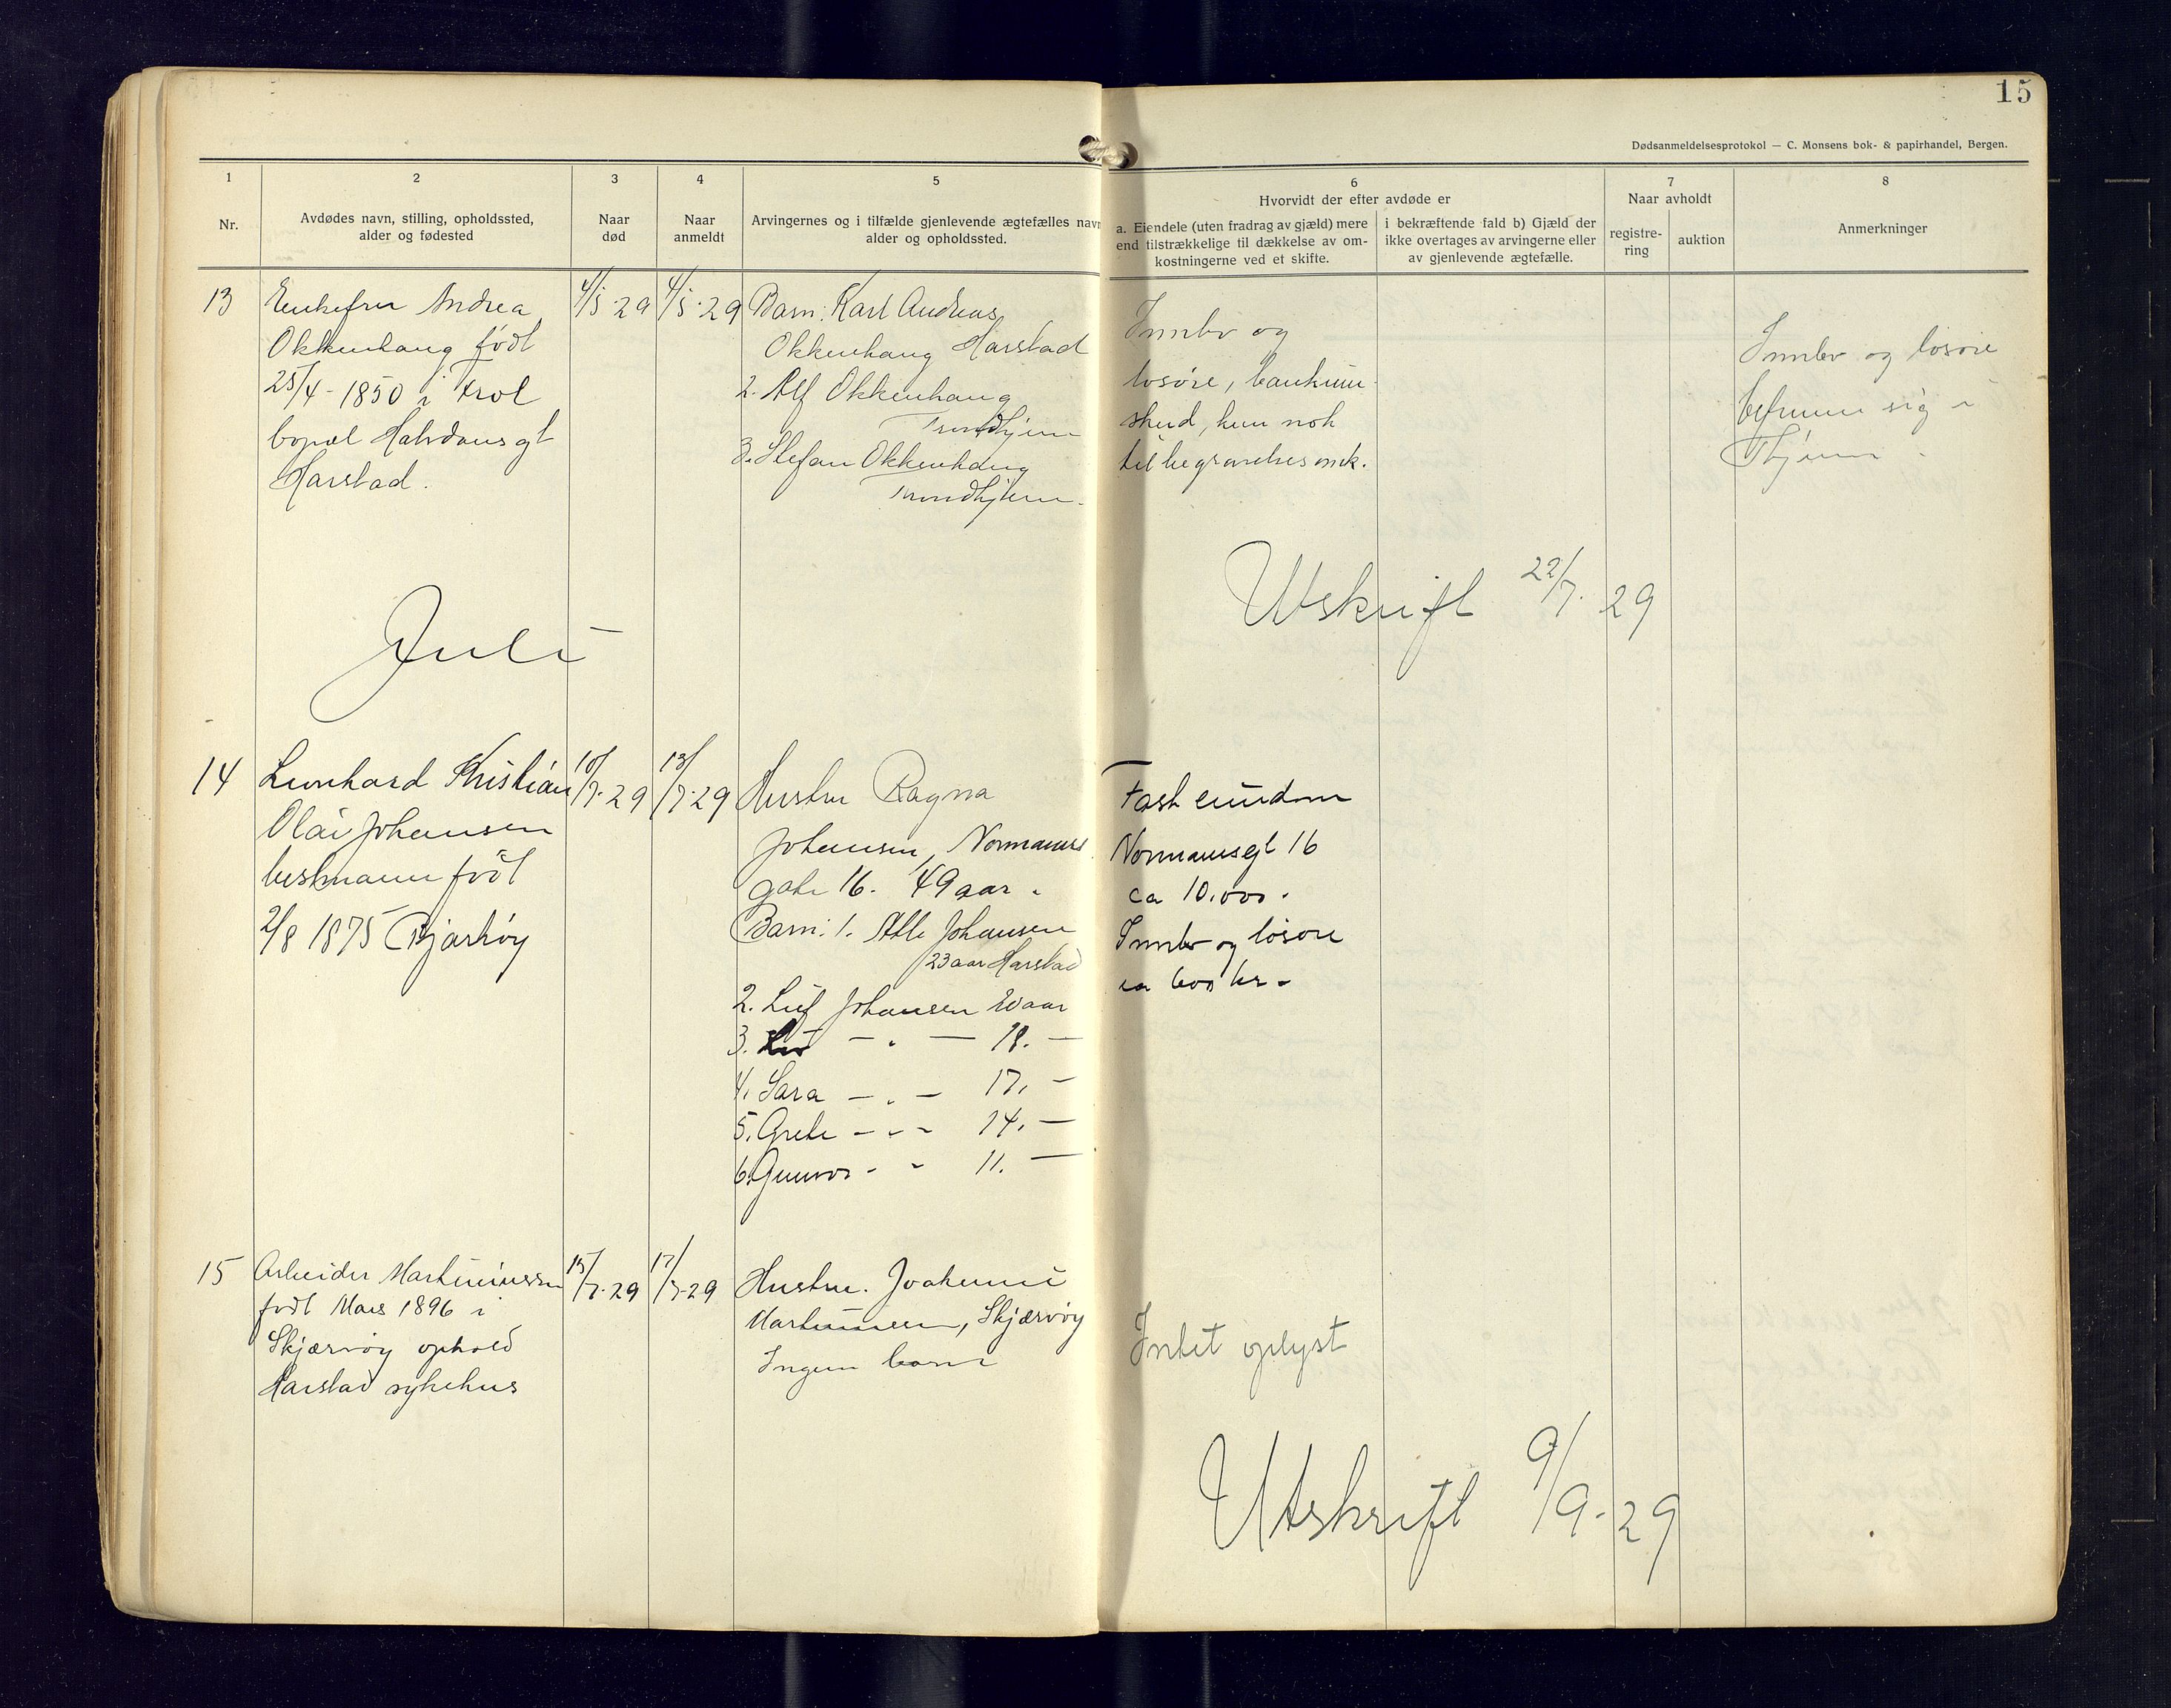 15
Dødsanmeldelsesprotokol — C. Monsens bok- & papirhandel, Bergen.
1
Nr.
2
Avdødes navn, stilling, opholdssted,
alder og fødested
3
Naar
død
4
Naar
anmeldt
5
Arvingernes og i tilfælde gjenlevende ægtefælles navn
alder og opholdssted.
6
Hvorvidt der efter avdøde er
a. Eiendele (uten fradrag av gjæld) mere
end tilstrækkelige til dækkelse av om-
kostningerne ved et skifte.
i bekræftende fald b) Gjæld der
ikke overtages av arvingerne eller
av gjenlevende ægtefælle.
7
Naar avholdt
registre-
ring
auktion
8
Anmerkninger
13
Enkefru Andrea
Okkenhaug født
25/4 - 1850 i
bopæl Halvdansgt
Harstad.
4/5-29
4/5-29
Barn: Karl Andreas
Okkenhaug Harstad
2. Alf Okkenhaug
Trondhjem
3. Stefan Okkenhaug
Trondhjem.
Innbo og
løsøre,
skud, kun nok
til begravelsesomk.
Innbo og løsøre
befinner sig i
Thjem.
Utskrift 22/7. 29
Juli
14
Leonhard Kristian
Olai Johansen
født
2/8 1875 Bjarkøy
10/7.29
13/7.29
Hustru Ragna
Johansen, Normanns
gate 16. 49 aar.
Barn: 1. Atle Johansen
23 aar Harstad
2. Leif Johansen 20 aar
3. Liv — " — 18. —
4. Sara — " — 17. —
5. Grete — " — 14. —
6. Gunvor - " 11. —
Fast eiendom
Normannsgt 16
ca 10.000.
Innbo og løsøre
ca 600 kr.
15
Arbeider Martinussen
født Mars 1896 i
Skjærvøy ophold
Harstad sykehus
15/7.29
17/7-29
Hustru.
Martinussen, Skjærvøy
Ingen barn
Intet oplyst
Utskrift 9/9-29